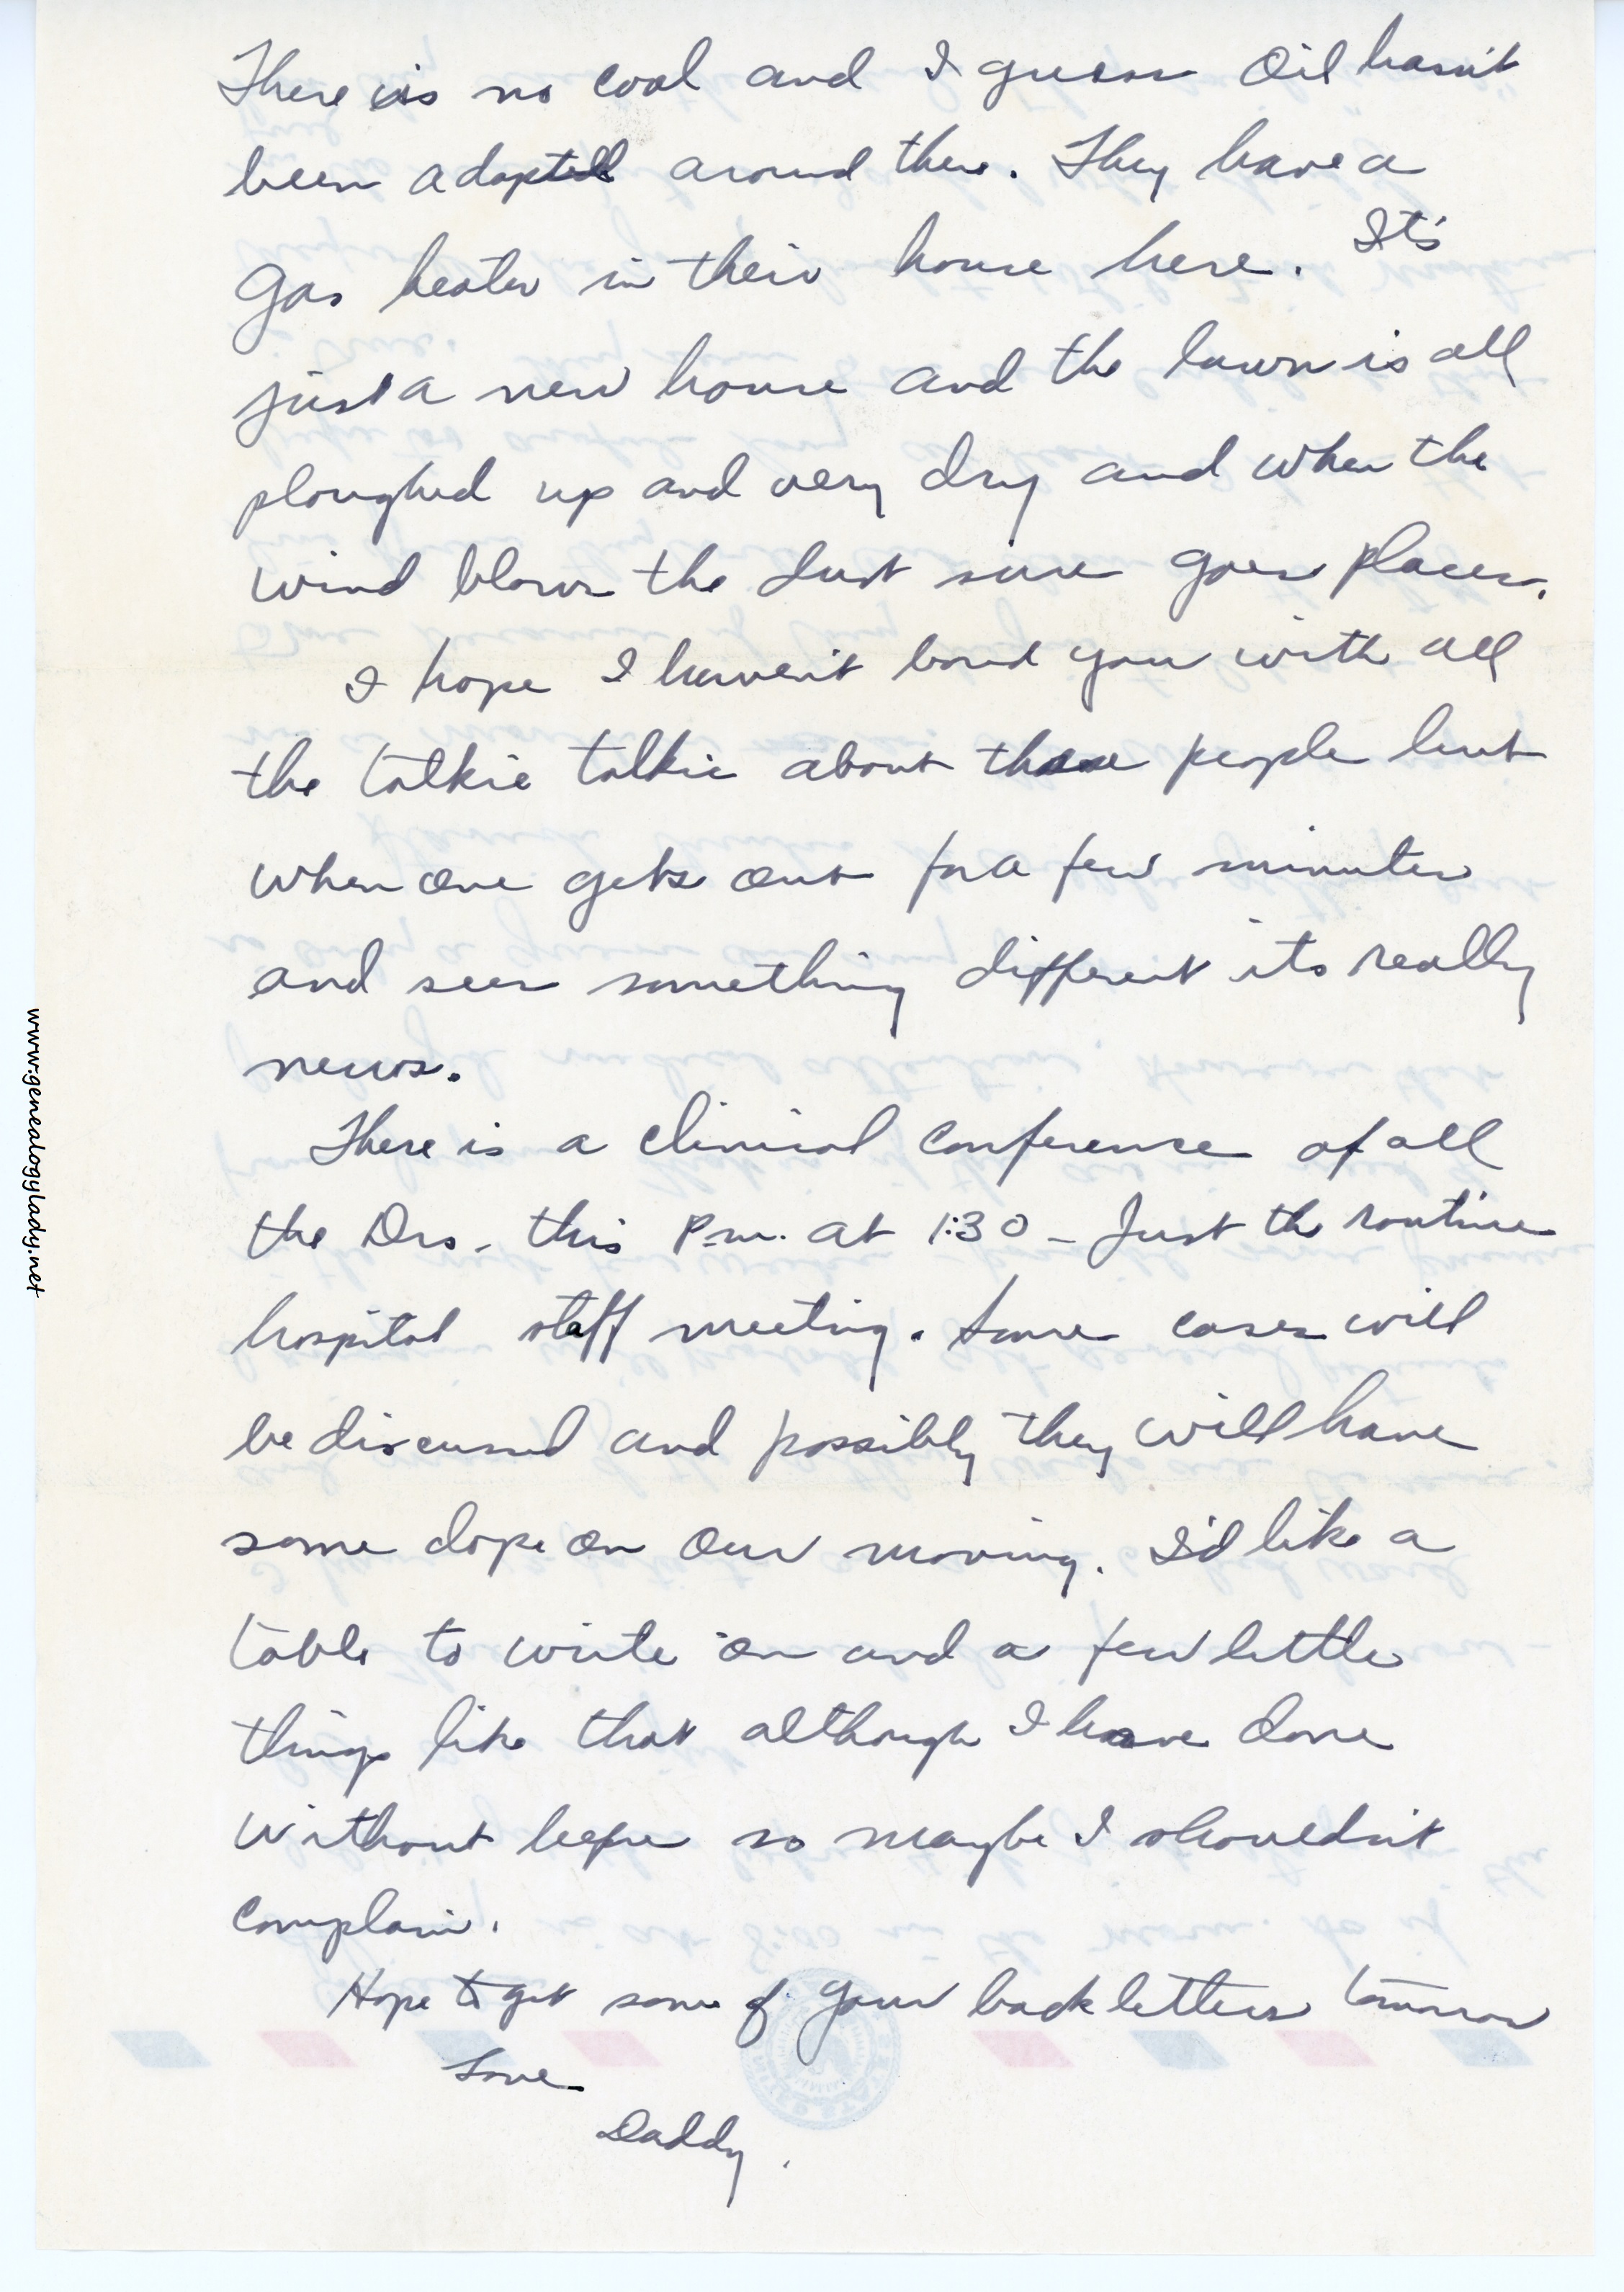 There is no coal and I guess oil hasn't
been adopted around there. They have a
gas heater in their house here. It's
just a new house and the lawn is all
ploughed up and very dry and when the
wind blows the dust sure goes places.
I hope I haven't bored you with all
the talkie talkie about these people but
when one gets out for a few minutes
and sees something different its really
news.
There is a clinical conference of all
the Drs. this P.m. at 1:30 - Just the routine
hospital staff meeting. Some cases will
be discussed and possibly they will have
some dope on our moving. I'd like a
table to write on and a few little
things like that although I have done
without before so maybe I shouldn't
complain.
Hope to get some of your back letters tomorrow
Love
Daddy.
www.genealogylady.net